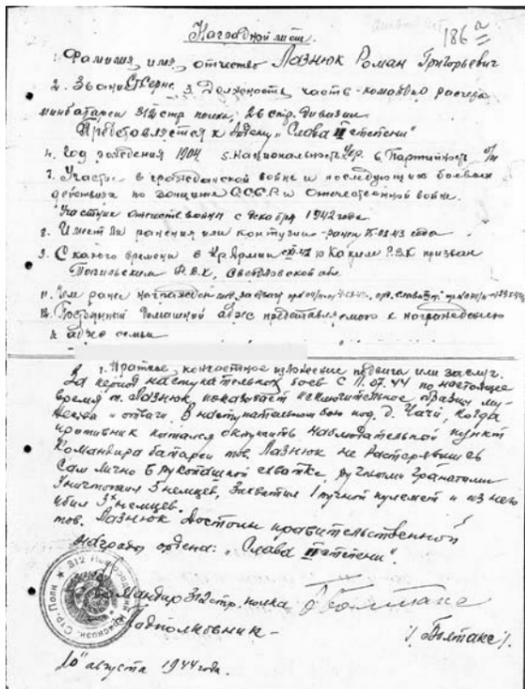 186
Наградной лист.
1. Фамилия, имя, отчество Лазнюк Роман Григорьевич
2. Звание Ст. Серж. 3. Должность, часть - командир расчета
минбатареи 312 стр. полка, 26 стр. дивизии
Представляется к ордену "Слава II степени"
4. Год рождения 1904 5. Национальность Укр. 6. Партийность б/п
7. Участие в гражданской войне и последующих боевых
действиях по защите СССР и отечественной войне.
Участие отечествен войны с декабря 1942 года
8. Имеет ли ранения или контузии - ранен 43 года
9. С какого времени в Кр. Армии каким РВК призван
РВК, Свердловской обл.
11. Чем ранее награжден
12. Постоянный домашний адрес представляемого к награждению
и адрес семьи
1. Краткое, конкретное изложение подвига или заслуг.
За период наступательных боев с 11.07.44 по настоящее
время т. Лазнюк показывает исключительные образцы му-
жества и отваги. В наступательном бою под д. Чачи, когда
противник пытался окружить наблюдательный пункт
Командира батареи тов. Лазнюк не растерявшись
Сам лично в рукопашной схватке, ручными гранатами
Уничтожил 5 немцев, Захватил 1 ручной пулемет и из него
убил 3х немцев.
тов. Лазнюк достоин правительственной
награды ордена: "Слава II степени".
Командир 312 стр. полка
Подполковник -
/Болтакс/.
"10" августа 1944 года.